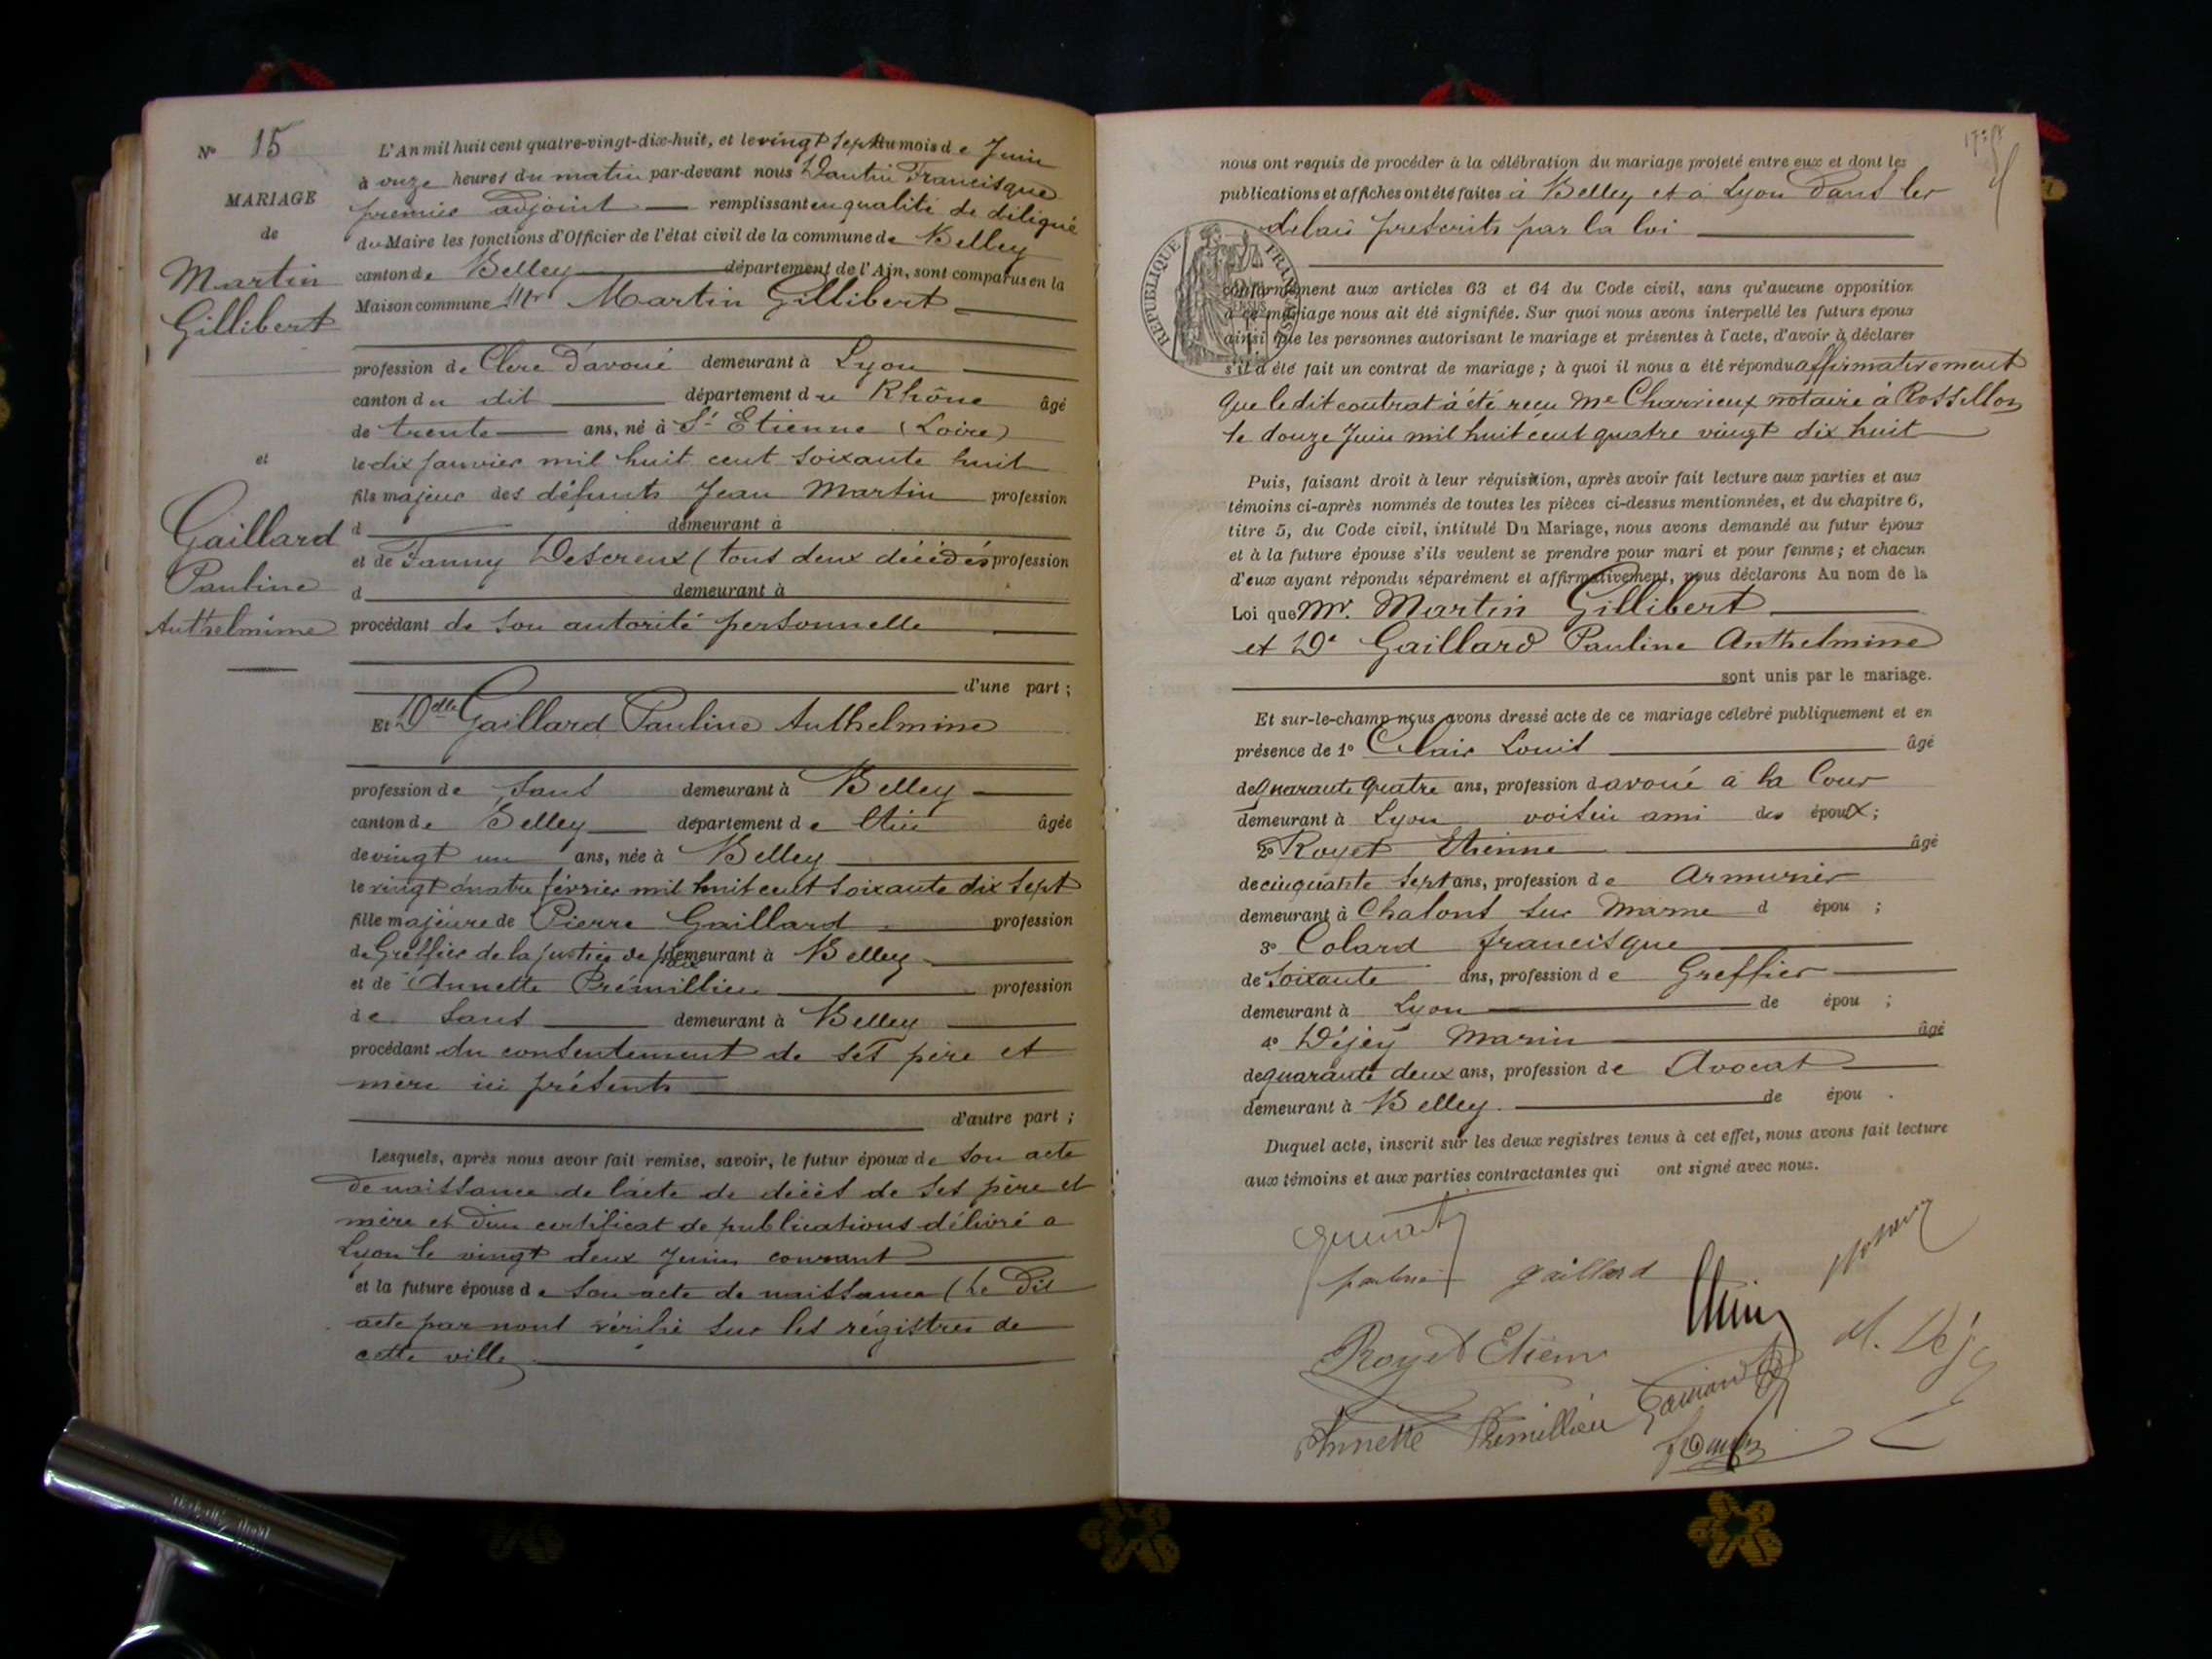 N° 15
MARIAGE
de
Martin
Gillibert
et
Gaillard
Pauline
Anthelmine
L'An mil huit cent quatre-vingt-dix-huit, et le vingt sept du mois de Juin
à onze heures du matin par-devant nous Dantin Francisque
premier adjoint remplissant en qualité de délégué
du Maire les fonctions d'Officier de l'état civil de la commune de Belley
canton de Belley département de l'Ain, sont comparus en la
Maison commune Mr Martin Gillibert
profession de Clerc d'avoué demeurant à Lyon
canton du dit département du Rhône âgé
de trente ans, né à St Etienne (Loire)
le dix janvier mil huit cent soixante huit
fils majeur des défunts Jean Martin profession
d demeurant à
et de Fanny Descreux (tous deux décédés profession
d demeurant à
procédant de son autorité personnelle
d'une part ;
Et Delle Gaillard Pauline Anthelmine
profession de sans demeurant à Belley
canton de Belley département de l'Ain âgée
de vingt un ans, née à Belley
le vingt quatre février mil huit cent soixante dix sept
fille majeure de Pierre Gaillard profession
de Greffier de la justice de paix demeurant à Belley
et de Annette Prémillieu profession
de sans demeurant à Belley
procédant du consentement de ses père et
mère ici présents
d'autre part ;
Lesquels, après nous avoir fait remise, savoir, le futur époux de son acte
de naissance de l'acte de décès de ses père et
mère et d'un certificat de publications délivré a
Lyon le vingt deux Juin courant
et la future épouse de son acte de naissance (le dit
acte par nous vérifié sur les régistres de
cette ville
nous ont requis de procéder à la célébration du mariage projeté entre eux et dont les
publications et affiches ont été faites à Belley et à Lyon dans les
délais prescrits par la loi
RÉPUBLIQUE FRANÇAISE
conformément aux articles 63 et 64 du Code civil, sans qu'aucune opposition
à ce mariage nous ait été signifiée. Sur quoi nous avons interpellé les futurs époux
ainsi que les personnes autorisant le mariage et présentes à l'acte, d'avoir à déclarer
s'il a été fait un contrat de mariage ; à quoi il nous a été répondu affirmativement
que le dit contrat à été reçu Me Charvieux notaire à Rossillon
le douze Juin mil huit cent quatre vingt dix huit
Puis, faisant droit à leur réquisition, après avoir fait lecture aux parties et aux
témoins ci-après nommés de toutes les pièces ci-dessus mentionnées, et du chapitre 6,
titre 5, du Code civil, intitulé Du Mariage, nous avons demandé au futur époux
et à la future épouse s'ils veulent se prendre pour mari et pour femme ; et chacun
d'eux ayant répondu séparément et affirmativement, nous déclarons Au nom de la
Loi que Mr. Martin Gillibert
et De Gaillard Pauline Anthelmine
sont unis par le mariage.
Et sur-le-champ nous avons dressé acte de ce mariage célébré publiquement et en
présence de 1° Clair Louis âgé
de quarante quatre ans, profession d avoué à la Cour
demeurant à Lyon voisin ami des époux ;
2° Royet Etienne âgé
de cinquante sept ans, profession de Armurier
demeurant à Chalons sur Marne d épou ;
3° Colard francisque
de soixante ans, profession de Greffier
demeurant à Lyon de épou ;
4° Déjey Marin âgé
de quarante deux ans, profession de Avocat
demeurant à Belley de épou .
Duquel acte, inscrit sur les deux registres tenus à cet effet, nous avons fait lecture
aux témoins et aux parties contractantes qui ont signé avec nous.
gaillard
Royet Etienne
M. Déjey
Annette Prémillieu